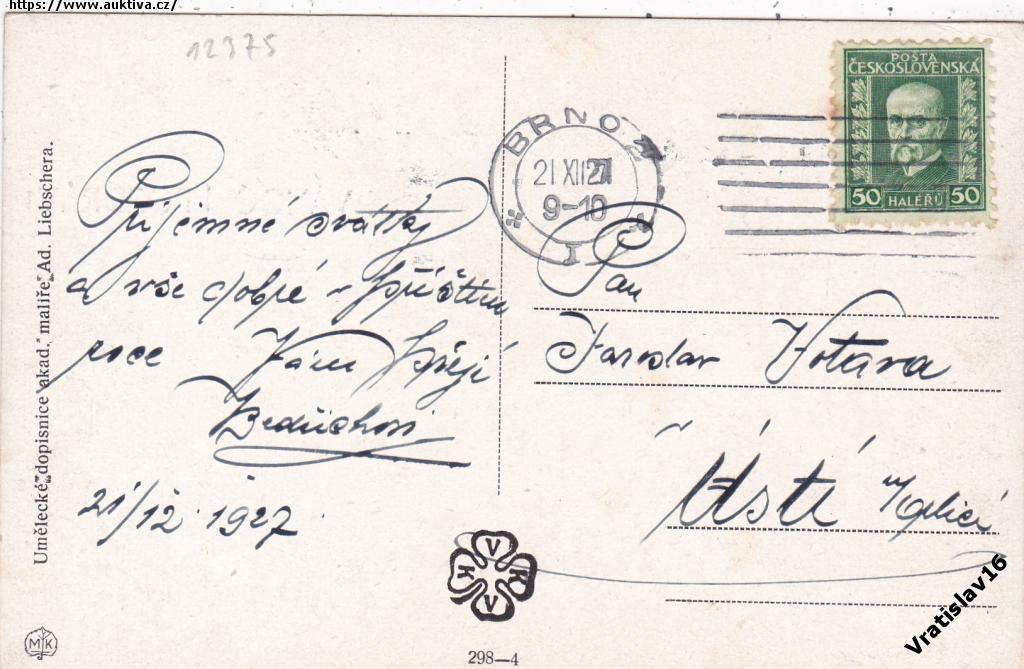 https://www.auktiva.cz/
12375
POŠTA
ČESKOSLOVENSKÁ
50 HALÉŘŮ 50
BRNO
21 XII 27
9-10
1
Příjemné svátky
a vše dobré v příštím
roce Vám přejí
Bedřichovi
21/12 1927
Pan
Jaroslav Votava
Ústí
Umělecké dopisnice akad. malíře Ad. Liebschera.
V K V K
MK
298—4
Vratislav16